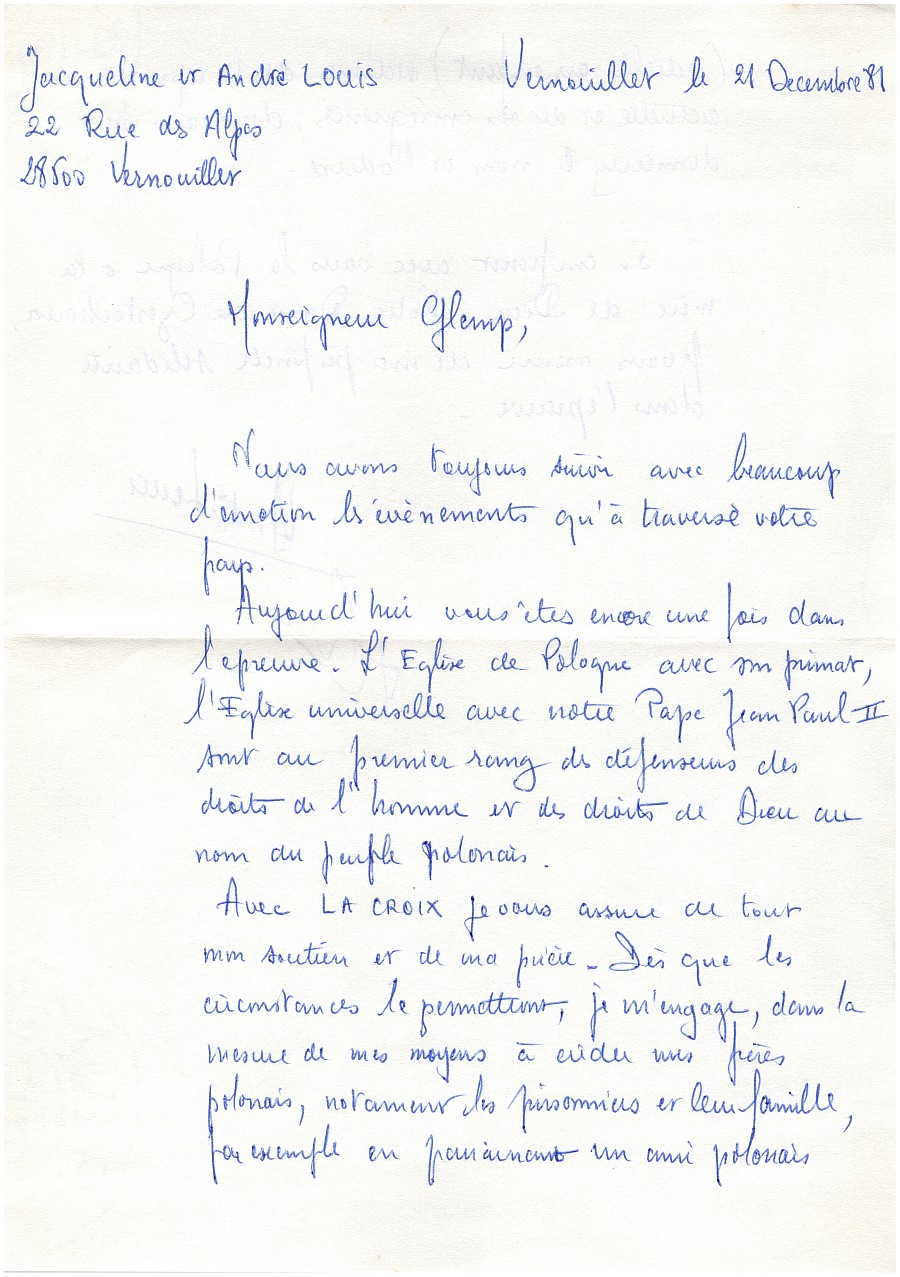 Jacqueline et André Louis
Vernouillet le 21 Decembre 81
22 Rue des Alpes
28500 Vernouillet
Monseigneur Glemp,
Nous avons toujours suivi avec beaucoup
d'émotion les évènements qu'à traversé votre
pays.
Aujourd'hui vous êtes encore une fois dans
l'epreuve. L'Eglise de Pologne avec son primat,
l'Eglise universelle avec notre Pape Jean Paul II
sont au premier rang des défenseurs des
droits de l'homme et des droits de Dieu au
nom du peuple polonais.
Avec LA CROIX je vous assure de tout
mon soutien et de ma prière. Dès que les
circonstances le permettront, je m'engage, dans la
mesure de mes moyens à aider mes frères
polonais, notament les prisonniers et leur famille,
par exemple en parrainant un ami polonais